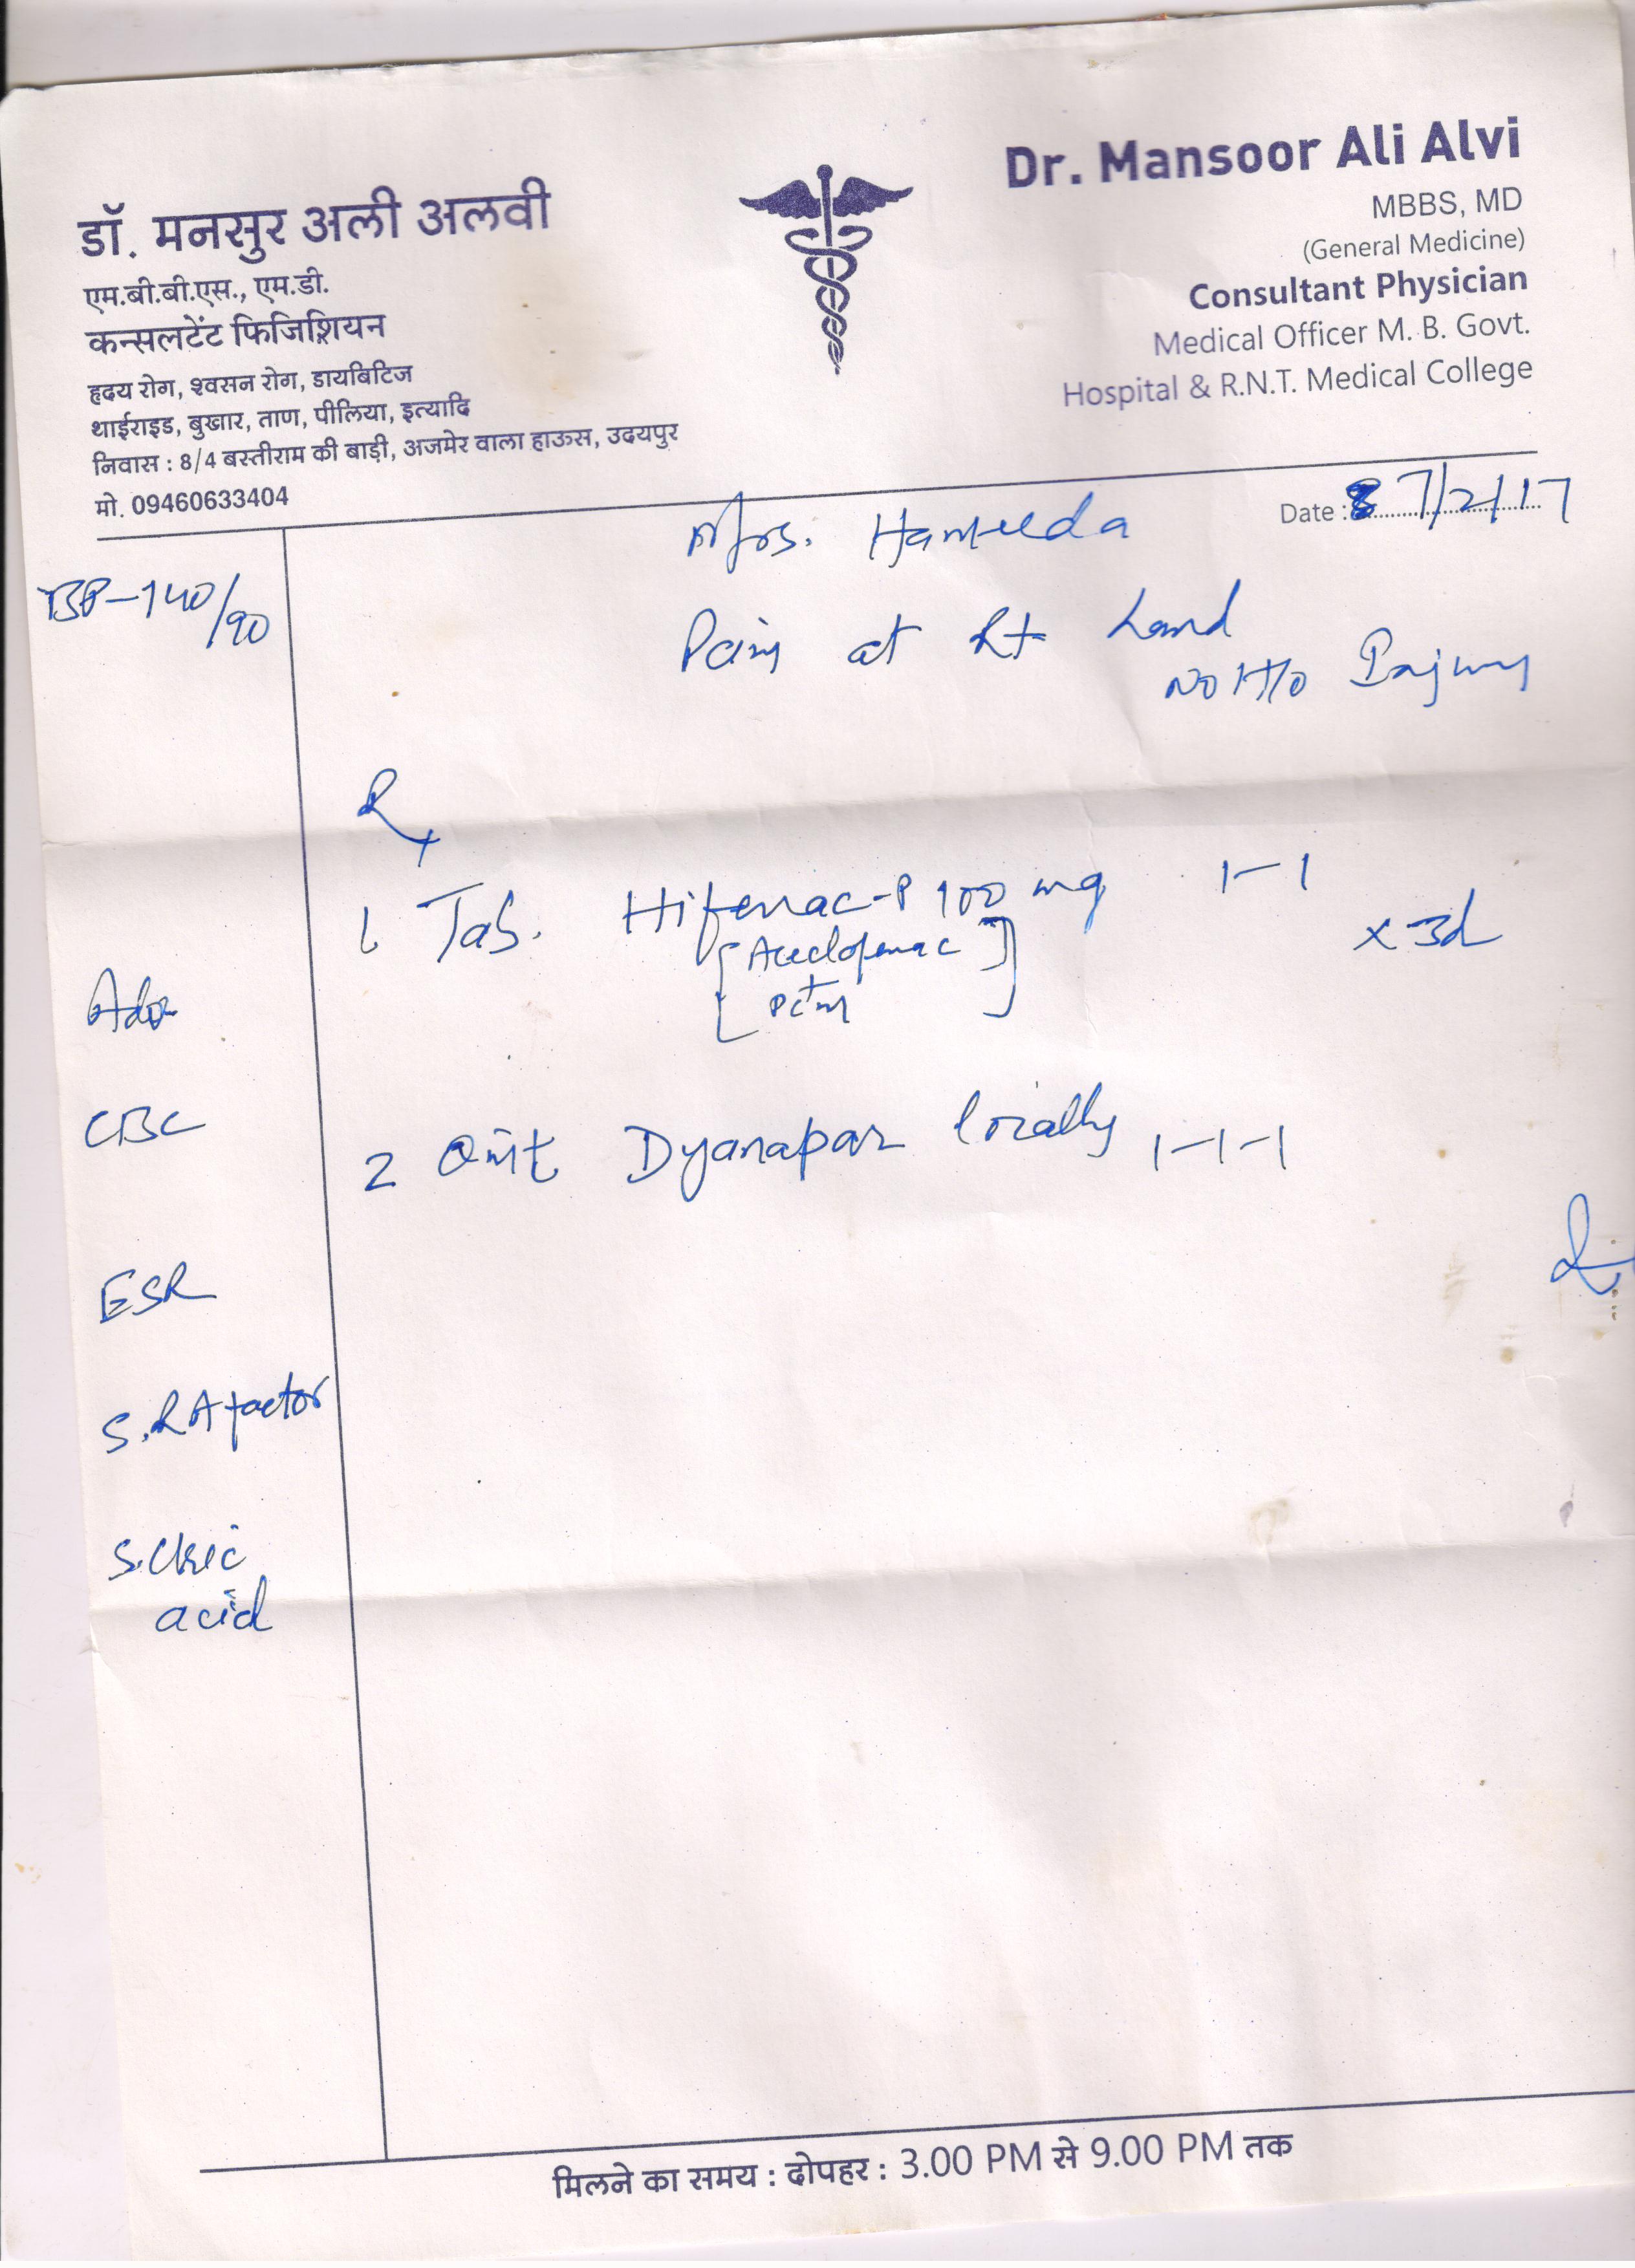 डॉ. मनसुर अली अलवी
एम.बी.बी.एस., एम.डी.
कन्सलटेंट फिजिशियन
हृदय रोग, श्वसन रोग, डायबिटिज
थाईराइड, बुखार, ताण, पीलिया, इत्यादि
निवास : 8/4 बस्तीराम की बाड़ी, अजमेर वाला हाऊस, उदयपुर
मो. 09460633404
Dr. Mansoor Ali Alvi
MBBS, MD
(General Medicine)
Consultant Physician
Medical Officer M. B. Govt.
Hospital & R.N.T. Medical College
Date : 7/2/17
Mrs. Hameeda
BP-140/90
Pain at Rt hand
No H/O Injury
Rx
1 Tab. Hifenac-P 100 mg 1-1
x 3d
[Aceclofenac
+
Pctm]
Adv
CBC
2 Oint Dyanapar locally 1-1-1
ESR
S. RA factor
S. Uric
acid
मिलने का समय : दोपहर : 3.00 PM से 9.00 PM तक